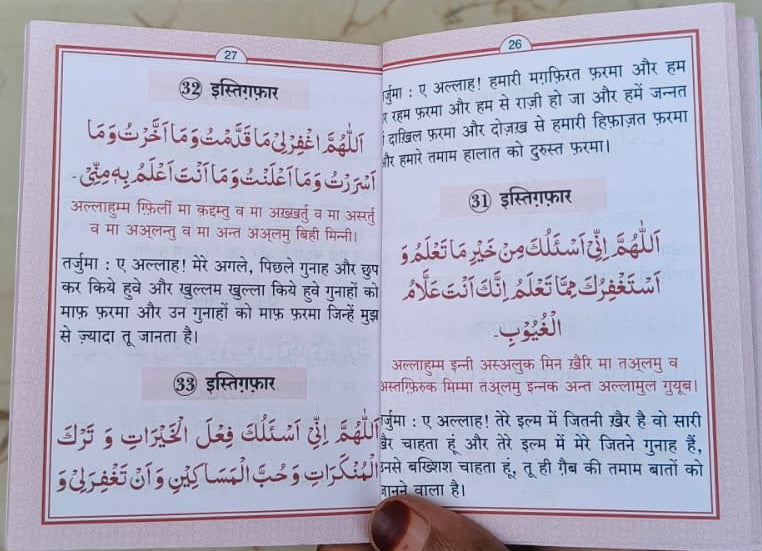 26
तर्जुमा : ए अल्लाह! हमारी मग़फ़िरत फ़रमा और हम
पर रहम फ़रमा और हम से राज़ी हो जा और हमें जन्नत
में दाख़िल फ़रमा और दोज़ख़ से हमारी हिफ़ाज़त फ़रमा
और हमारे तमाम हालात को दुरुस्त फ़रमा।
31 इस्तिग़फ़ार
اَللّٰهُمَّ اِنِّیْ اَسْئَلُكَ مِنْ خَیْرِ مَا تَعْلَمُ وَ
اَسْتَغْفِرُكَ مِمَّا تَعْلَمُ اِنَّكَ اَنْتَ عَلَّامُ
الْغُیُوْبِ۔
अल्लाहुम्म इन्नी अस्अलुक मिन ख़ैरि मा तअ्लमु व
अस्तग़्फ़िरुक मिम्मा तअ्लमु इन्नक अन्त अल्लामुल ग़ुयूब।
तर्जुमा : ए अल्लाह! तेरे इल्म में जितनी ख़ैर है वो सारी
ख़ैर चाहता हूं और तेरे इल्म में मेरे जितने गुनाह हैं,
उनसे बख्शिश चाहता हूं, तू ही ग़ैब की तमाम बातों को
जानने वाला है।
27
32 इस्तिग़फ़ार
اَللّٰهُمَّ اغْفِرْلِیْ مَا قَدَّمْتُ وَمَا اَخَّرْتُ وَمَا
اَسْرَرْتُ وَمَا اَعْلَنْتُ وَمَا اَنْتَ اَعْلَمُ بِهٖ مِنِّیْ۔
अल्लाहुम्म ग़्फ़िर्ली मा क़द्दम्तु व मा अख़्ख़र्तु व मा असर्तु
व मा अअ्लन्तु व मा अन्त अअ्लमु बिही मिन्नी।
तर्जुमा : ए अल्लाह! मेरे अगले, पिछले गुनाह और छुप
कर किये हुवे और खुल्लम खुल्ला किये हुवे गुनाहों को
माफ़ फ़रमा और उन गुनाहों को माफ़ फ़रमा जिन्हें मुझ
से ज़्यादा तू जानता है।
33 इस्तिग़फ़ार
اَللّٰهُمَّ اِنِّیْ اَسْئَلُكَ فِعْلَ الْخَیْرَاتِ وَ تَرْكَ
الْمُنْكَرَاتِ وَحُبَّ الْمَسَاكِیْنِ وَ اَنْ تَغْفِرَ لِیْ وَ